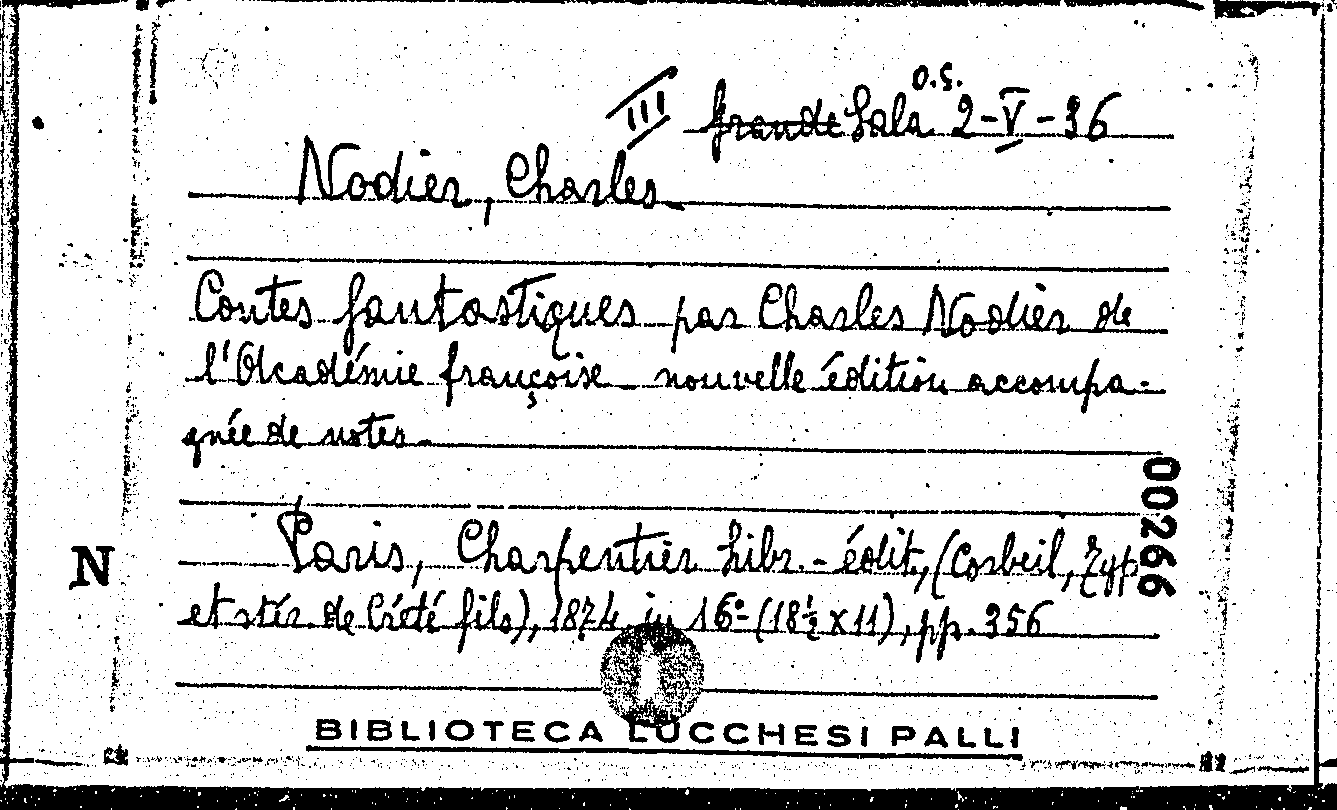 O.S.
III grande Sala 2-V-36
Nodier, Charles
Contes fantastiques par Charles Nodier de
l'Académie françoise nouvelle édition accompa-
gnée de notes.
00266
Paris, Charpentier Libr.-édit., (Corbeil, Typ.
N
et stér. de Crété fils), 1874 in 16° (18½ x 11), pp. 356
BIBLIOTECA LUCCHESI PALLI